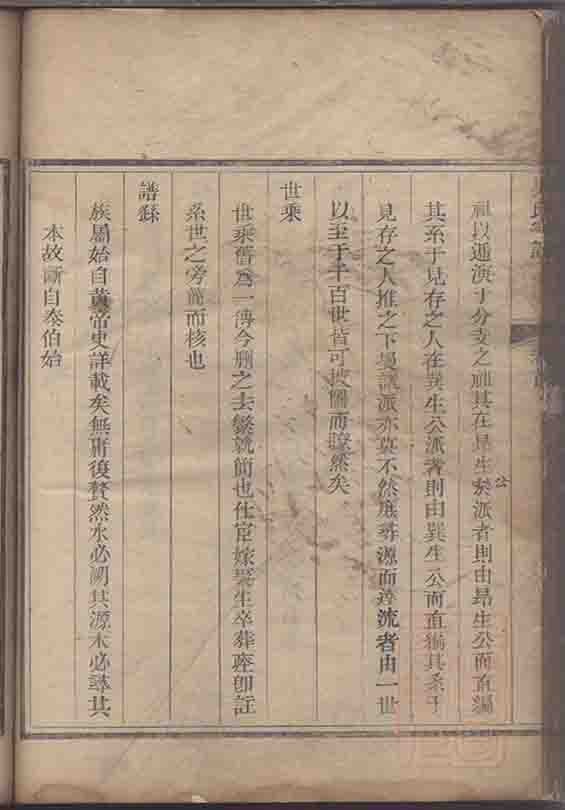 吳氏宗譜
祖以遞演于分支之祖其在昂生公派者則由昂生公而直編
其系于見存之人在巽生公派者則由巽生公而直編其系于
見存之人推之下旻諸派亦莫不然庶尋源而達流者由一世
以至于千百世皆可披圖而瞭然矣
世乘
世乘舊爲一傳今刪之去繁就簡也仕宦嫁娶生卒葬座卽註
系世之旁簡而核也
譜繇
族屬始自黃帝史詳載矣無庸復贅然水必溯其源木必尋其
本故斷自泰伯始